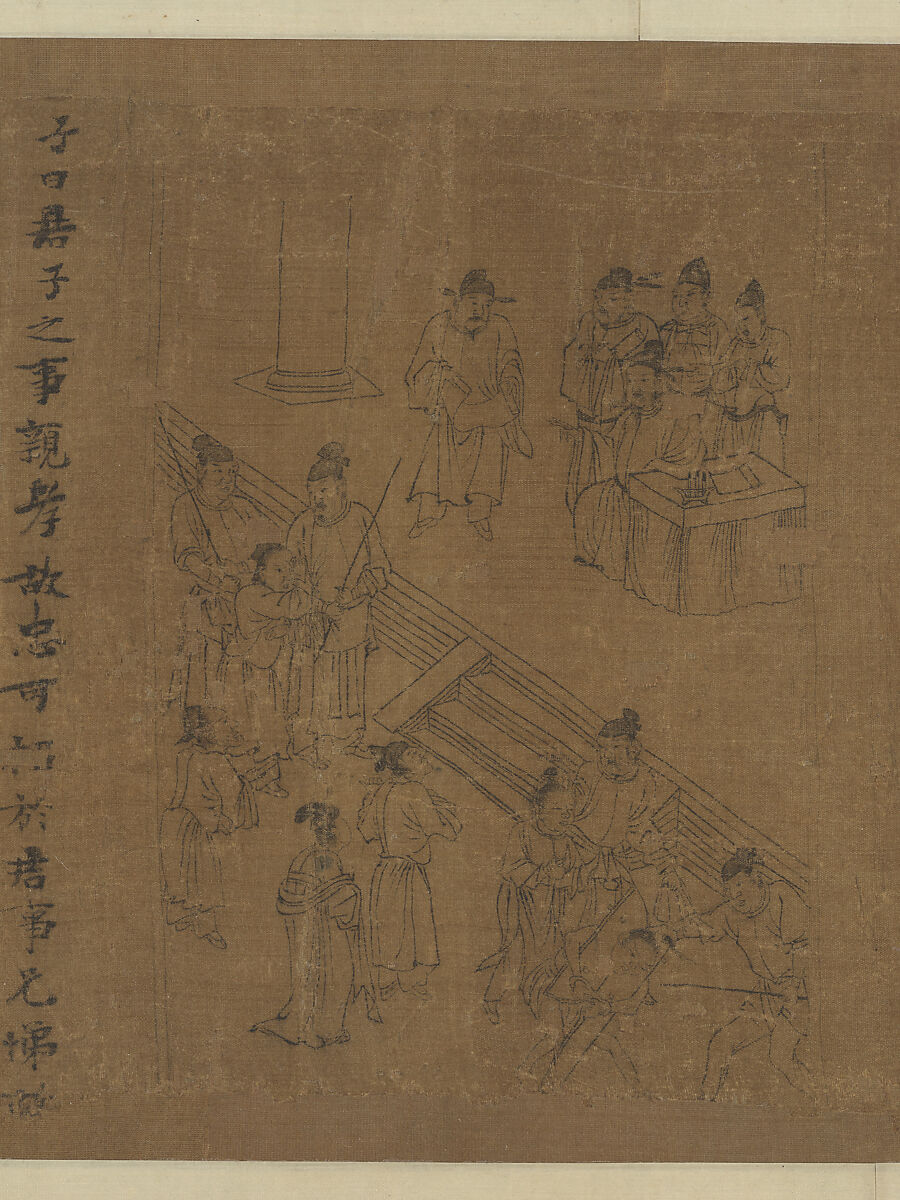 子曰君子之事親孝故忠可移於君事兄悌故